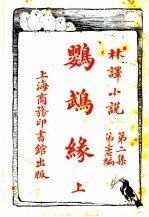 林譯小說
第二集
第壱編
鸚鵡緣 上
上海商務印書館出版